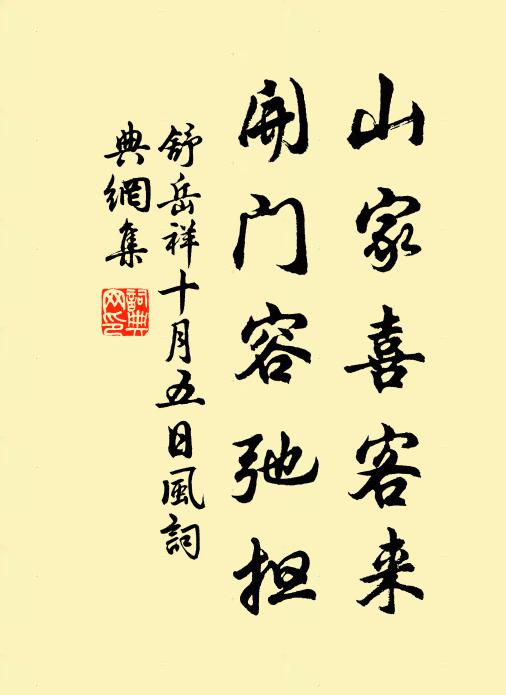 山家喜客来
開门容弛担
舒岳祥十月五日風詞
典網集
詞典网印